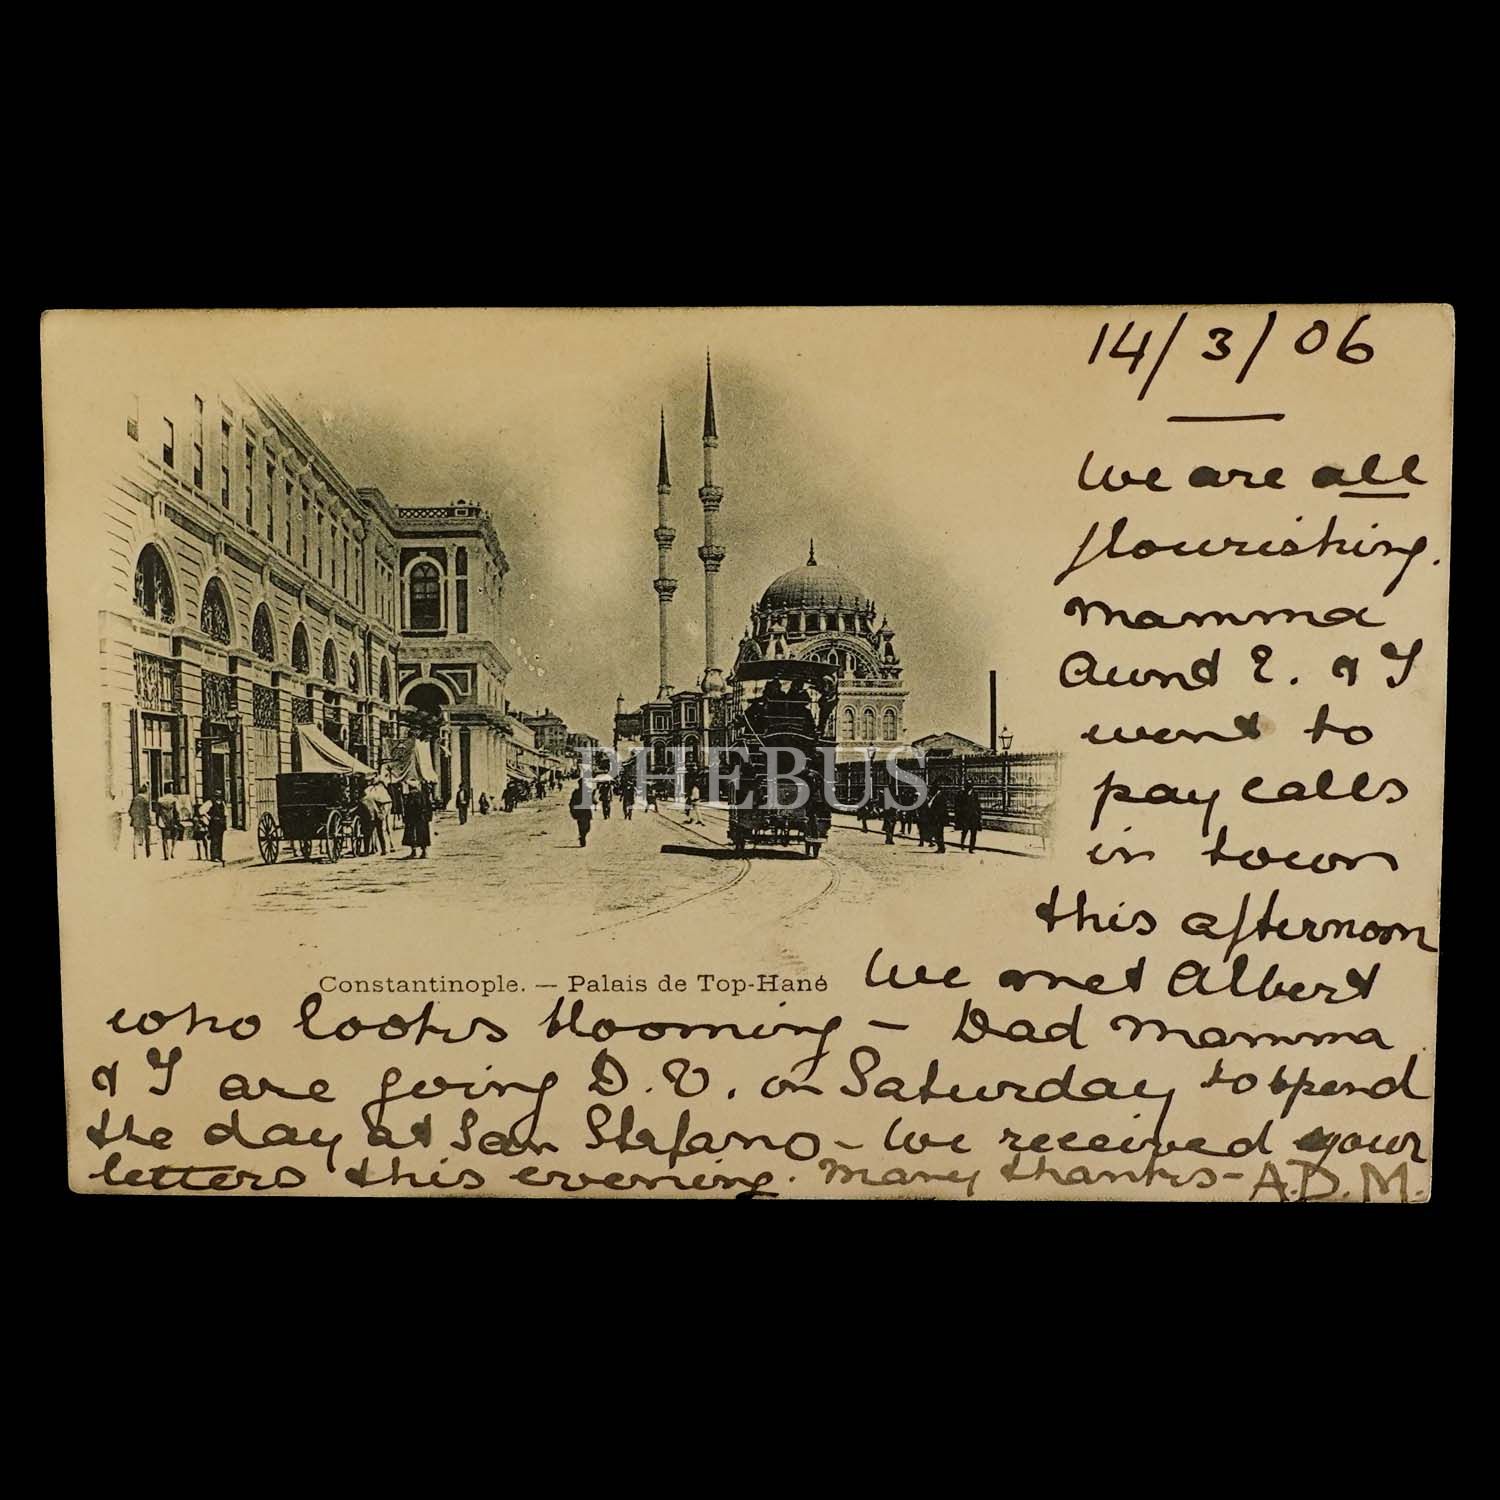 14/3/06
We are all
flourishing.
Mamma
Aunt E. & I
went to
pay calls
in town
this afternoon
We met Albert
Constantinople. — Palais de Top-Hané
who looks blooming — Dad Mamma
& I are going D.V. on Saturday to spend
the day at San Stefano — We received your
letters this evening. Many thanks — A.D.M.
PHEBUS